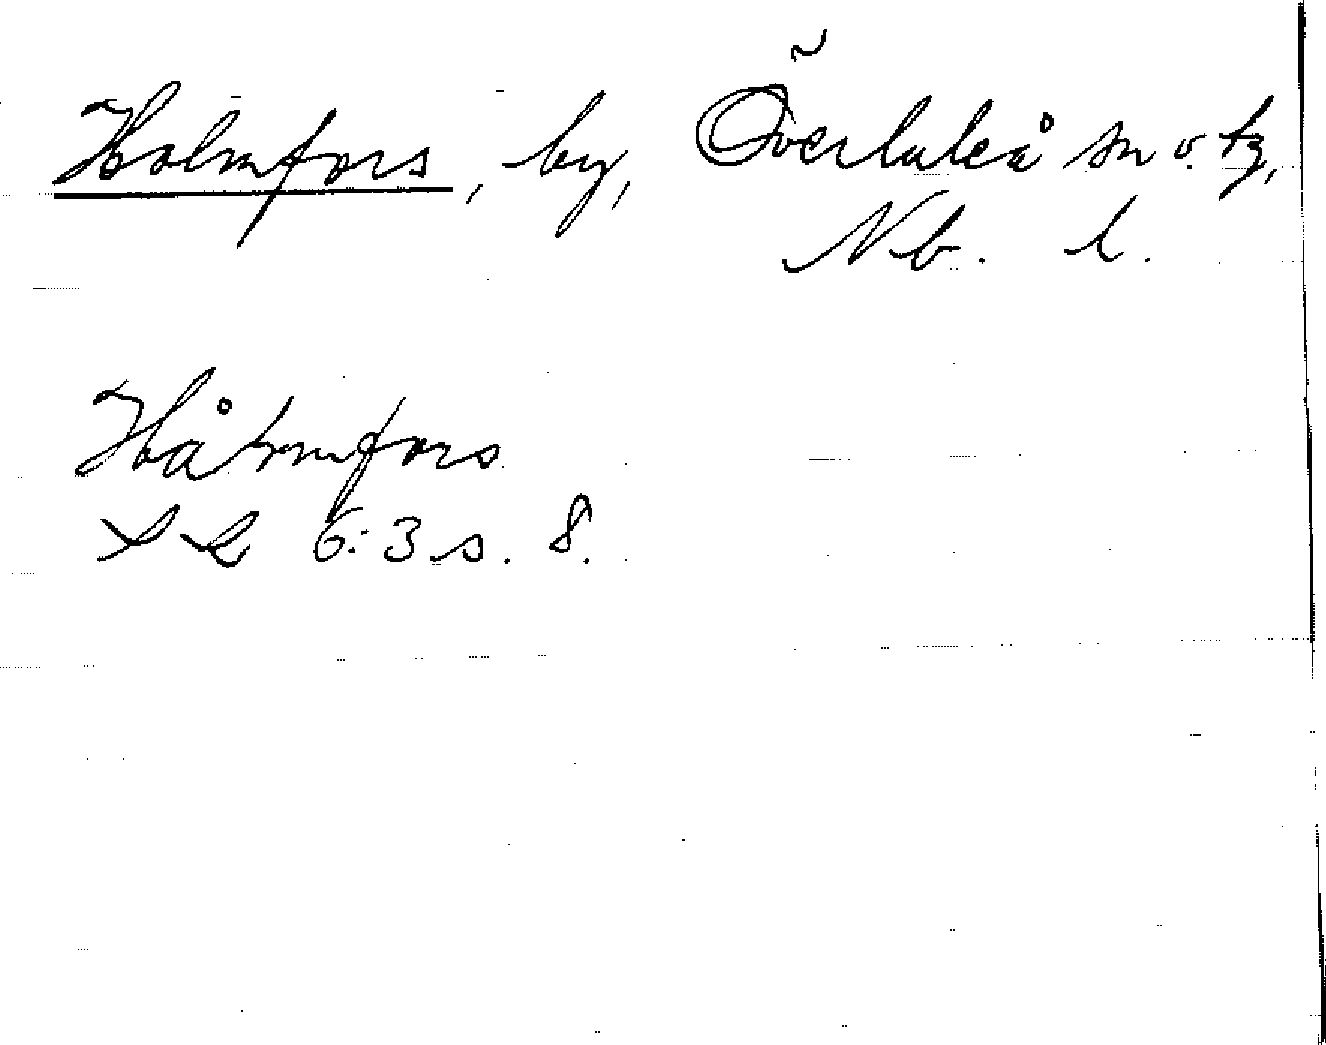 Holmfors, by, Överluleå sn o. tg,
Nb. l.
Håłmfors
S L 6:3 s. 8.